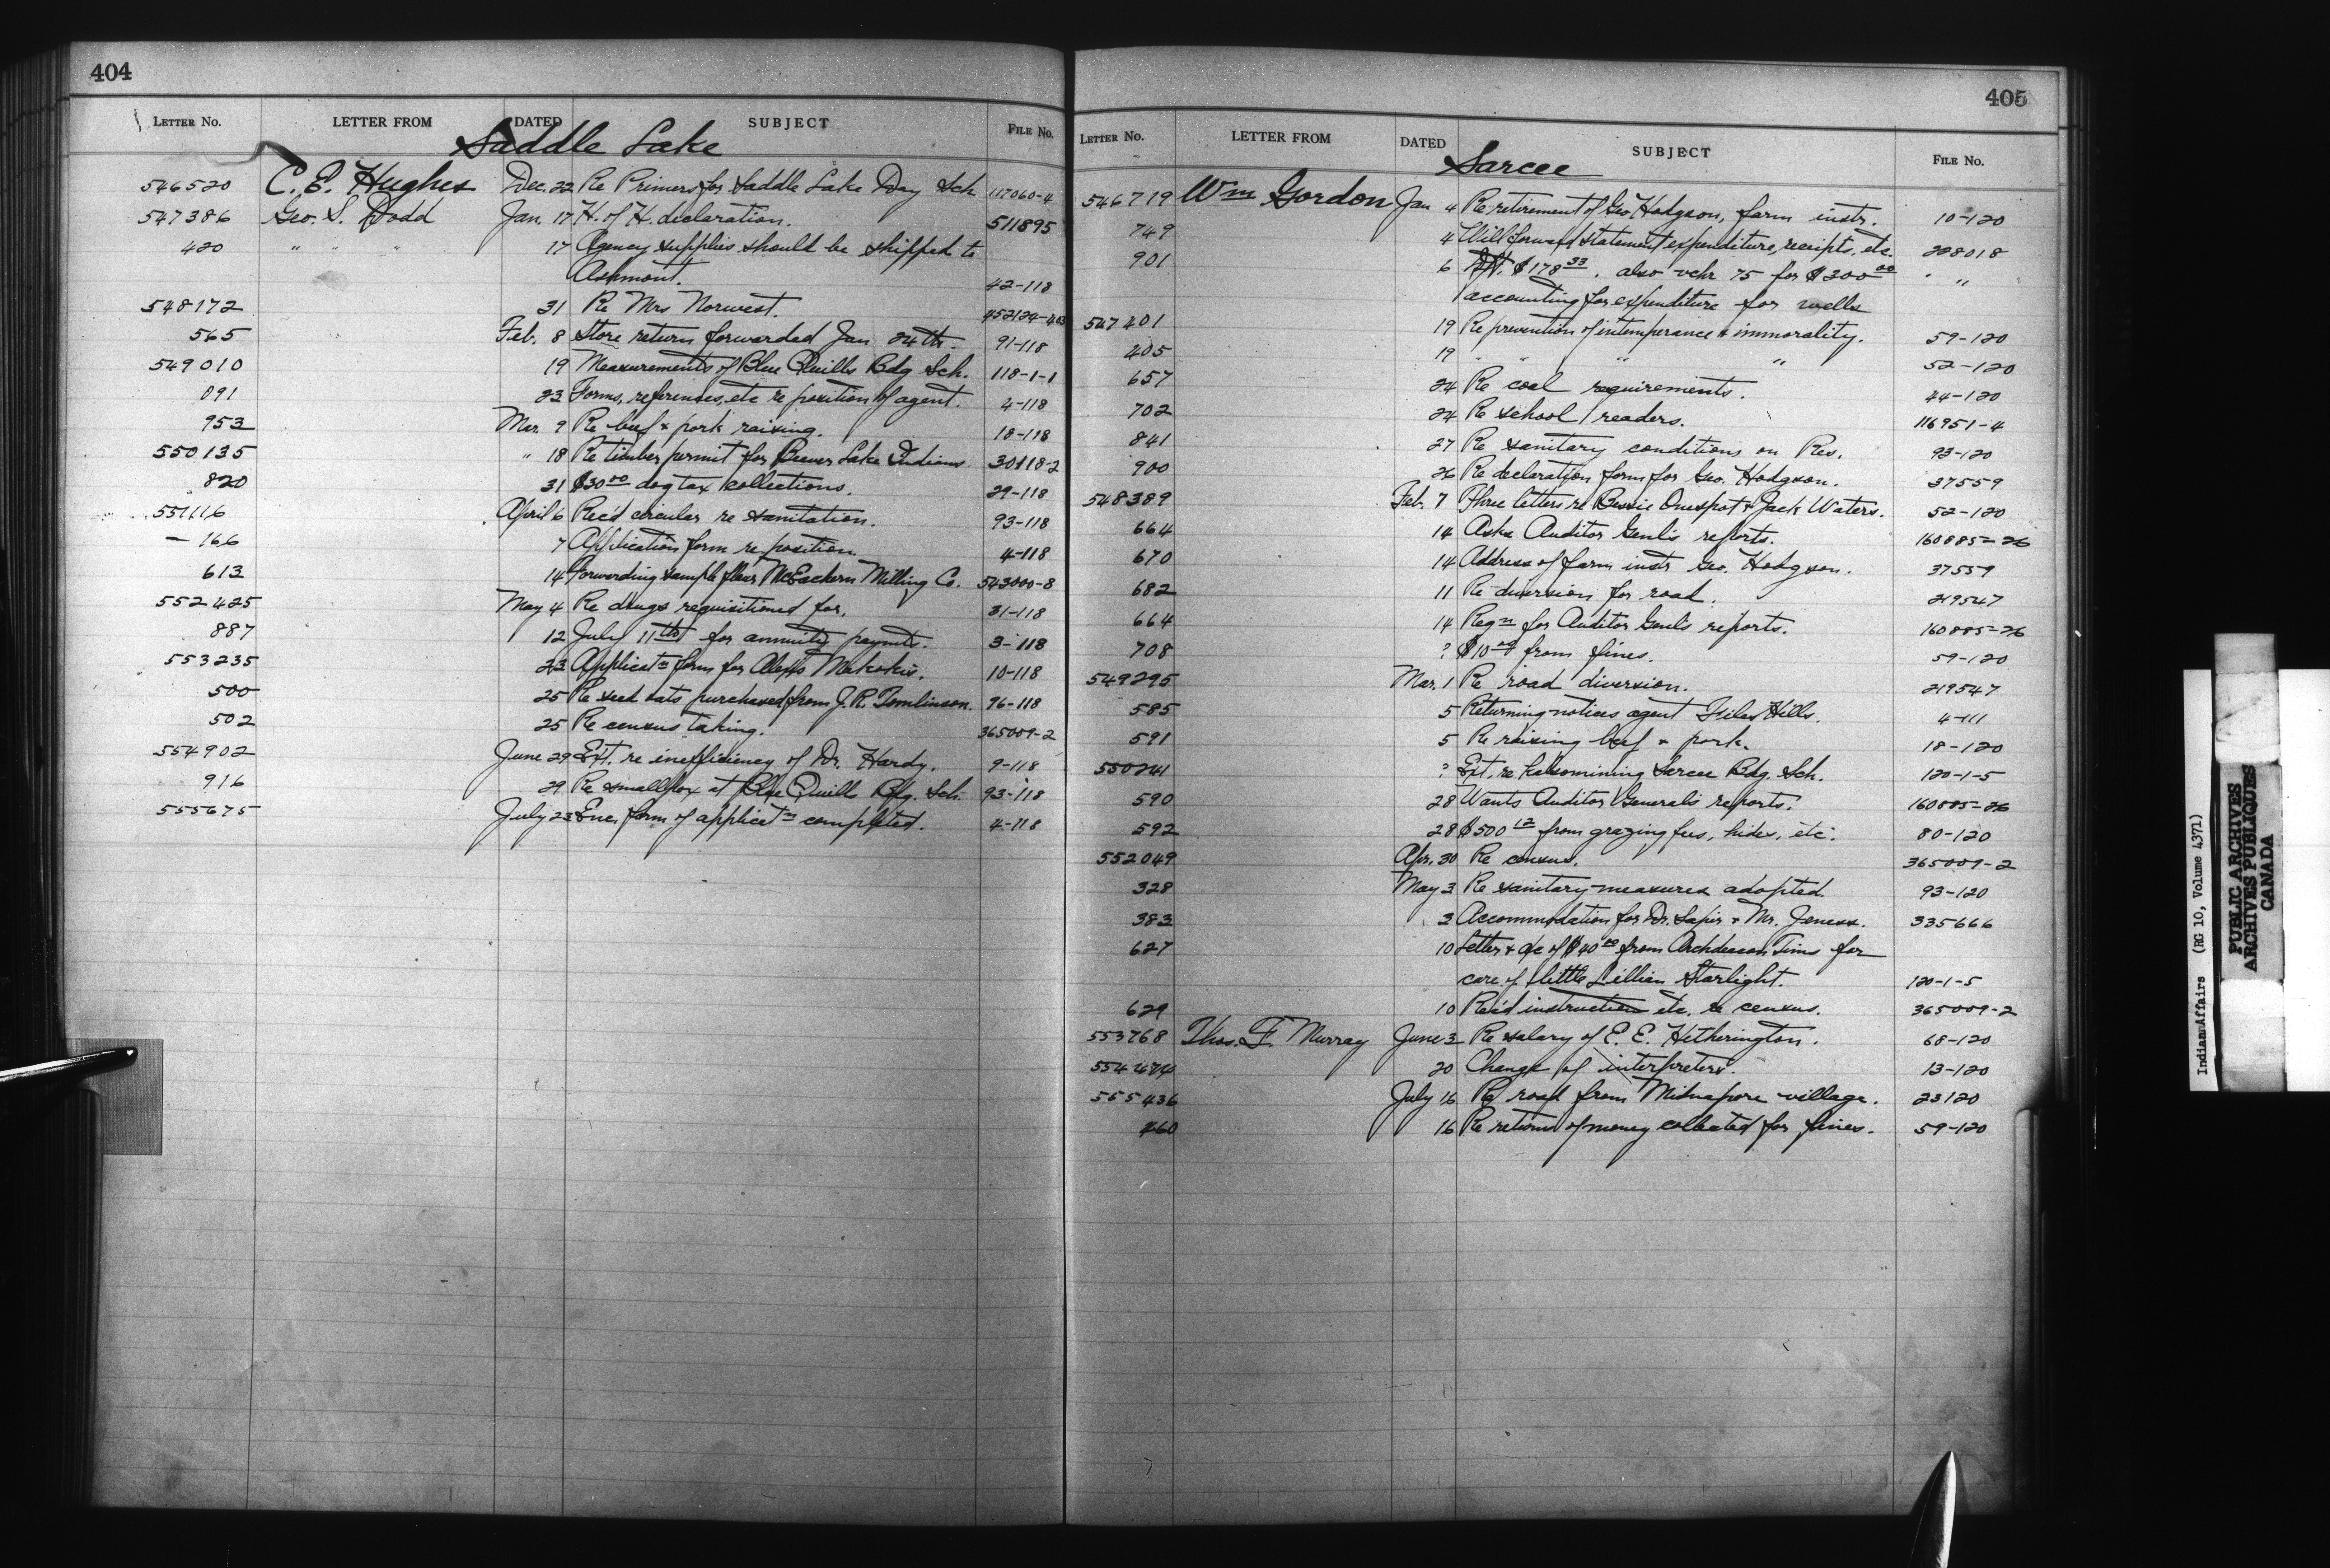 404
LETTER No. LETTER FROM DATED SUBJECT FILE No.
Saddle Lake
546520 C. E. Hughes Dec. 22 Re Primers for Saddle Lake Day Sch 117060-4
547386 Geo. S. Dodd Jan. 17 H. of H. declaration. 511895
420 " " " 17 Agency supplies should be shipped to
Ashmont. 42-118
548172 31 Re Mrs Norwest. 452124-403
565 Feb. 8 Store return forwarded Jan 24th. 91-118
549010 19 Measurements of Blue Quills Bdg Sch. 118-1-1
091 23 Forms, references, etc re position of agent. 4-118
953 Mar. 9 Re beef & pork raising. 18-118
550135 " 18 Re timber permit for Beaver Lake Indians. 30118-2
820 31 $30.00 dog tax collections. 29-118
551116 April 6 Rec'd circular re sanitation. 93-118
- 166 7 Application form re position 4-118
613 14 Forwarding sample flour McEachern Milling Co. 543000-8
552425 May 4 Re drugs requisitioned for. 31-118
887 12 July 11th for annuity paymts. 3-118
553235 23 Applicatn form for Alexis 10-118
500 25 Re seed oats purchased from J. R. Tomlinson. 96-118
502 25 Re census taking. 365009-2
554902 June 29 Ext. re inefficiency of Dr. Hardy. 9-118
916 29 Re smallpox at Blue Quills Bdg. Sch. 93-118
555675 July 23 Enc. form of applicatn completed. 4-118
405
LETTER No. LETTER FROM DATED SUBJECT FILE No.
Sarcee
546719 Wm Gordon Jan 4 Re retirement of Geo Hodgson, farm instr. 10-120
749 4 Will forward statement expenditure, receipts, etc. 228018
901 6 $178.33. also vchr 75 for $300.00 " "
accounting for expenditure for wells
547401 19 Re prevention of intemperance & immorality. 59-120
405 19 " " " " 52-120
657 24 Re coal requirements. 44-120
702 24 Re school readers. 116951-4
841 27 Re sanitary conditions on Res. 93-120
900 26 Re declaration form for Geo. Hodgson. 37559
548389 Feb. 7 Three letters re Bessie Onespot & Jack Waters. 52-120
664 14 Asks Auditor Genl's reports. 160885-26
670 14 Address of farm instr Geo. Hodgson. 37559
682 11 Re diversion for road. 219547
664 14 Reqn for Auditor Genl's reports. 160885-26
708 ? $10.00 from fines. 59-120
549295 Mar. 1 Re road diversion. 219547
585 5 Returning notices agent File Hills. 4-111
591 5 Re raising beef & pork. 18-120
550241 ? Ext. re kalsomining Sarcee Bdg. Sch. 120-1-5
590 28 Wants Auditor General's reports. 160885-26
592 28 $500.12 from grazing fees, hides, etc. 80-120
552049 Apr. 30 Re census. 365009-2
328 May 3 Re sanitary measures adopted. 93-120
383 3 Accommodation for Dr. Sapir & Mr. Jeness. 335666
627 10 Letter & a/c of $40.00 from Archdeacon Tims for
care of little Lillian Starlight. 120-1-5
629 10 Rec'd instruction etc. re census. 365009-2
553768 Thos. F. Murray June 3 Re salary of E. E. Hetherington. 68-120
554474 20 Change of interpreters. 13-120
555436 July 16 Re road from Midnapore village. 23120
460 16 Re returns of money collected for fines. 59-120
Indian Affairs (RG 10, Volume 4371)
PUBLIC ARCHIVES
ARCHIVES PUBLIQUES
CANADA